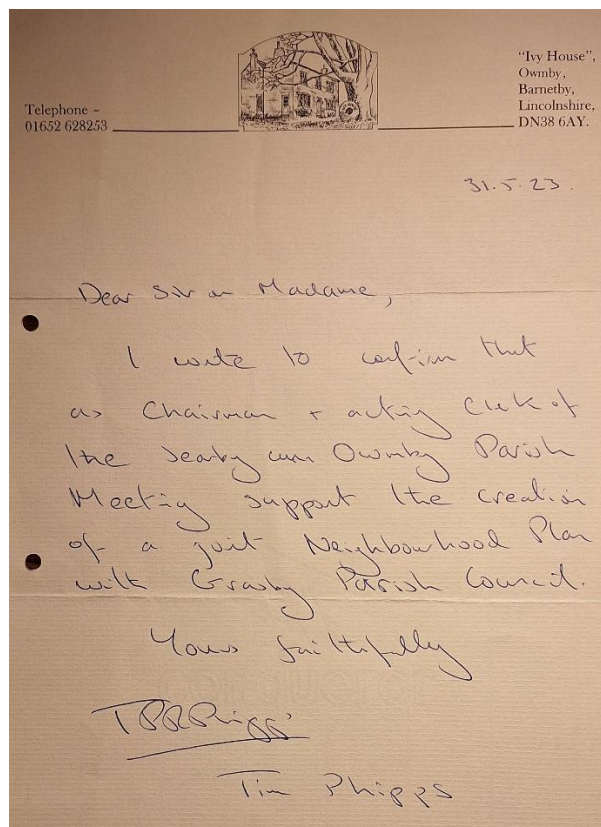 Telephone -
01652 628253
"Ivy House",
Owmby,
Barnetby,
Lincolnshire,
DN38 6AY.
31.5.23.
Dear Sir or Madame,
I write to confirm that
as Chairman + acting Clerk of
the Searby cum Owmby Parish
Meeting support the creation
of a joint Neighbourhood Plan
with Grasby Parish Council.
Yours faithfully
Tim Phipps